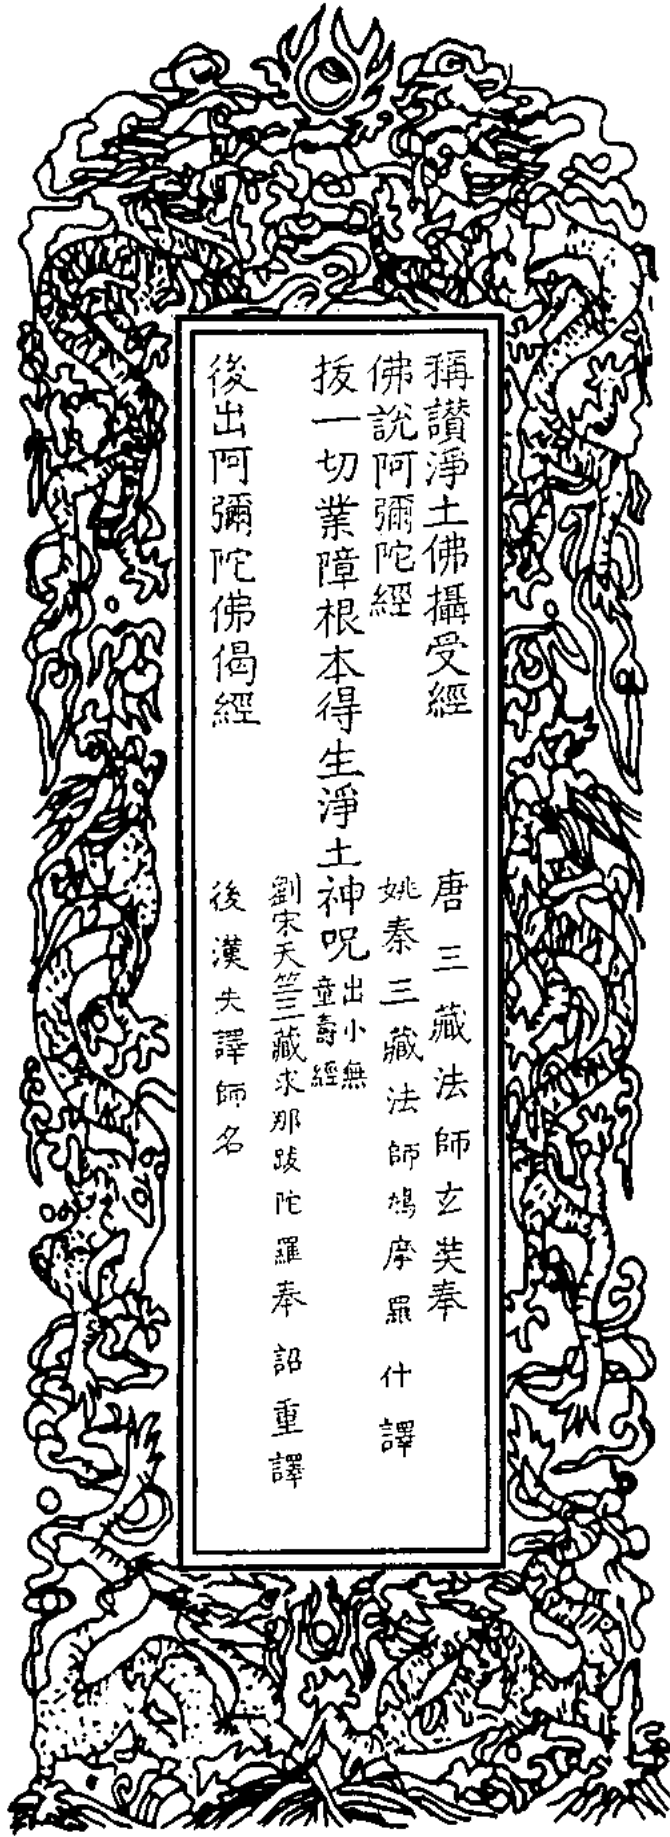 稱讚淨土佛攝受經 唐三藏法師玄奘奉
佛說阿彌陀經 姚秦三藏法師鳩摩羅什譯
拔一切業障根本得生淨土神呪 出小無量壽經
劉宋天竺三藏求那跋陀羅奉詔重譯
後出阿彌陀佛偈經 後漢失譯師名